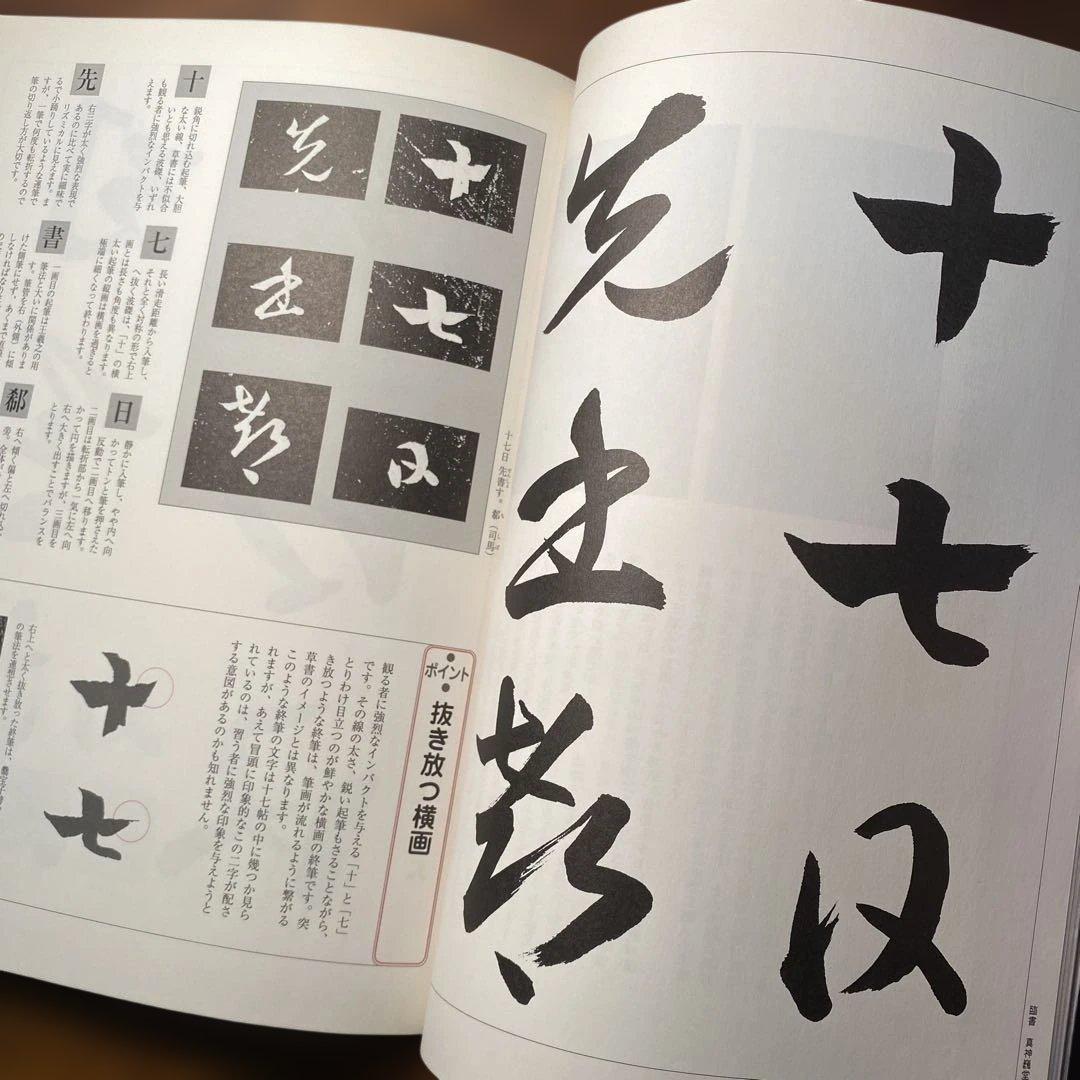 十七日
先書郗
臨書 真神巍堂
十七日
先書郗
十七日 先書す。郗(司馬)
十
鋭角に切れ込む起筆、大胆
な太い線、草書には不似合
いとも思える波磔、いずれ
も観る者に強烈なインパクトを与
えます。
七
長い滑走距離から入筆し、
それと全く対称の形で右上
へ抜く波磔は、「十」の横
画とは長さも角度も異なります。
太い起筆の縦画は横画を過ぎると
極端に細くなって終わります。
日
静かに入筆し、やや内へ向
かってトンと筆を押さえた
反動で二画目へ移ります。
二画目は転折部から一気に左へ向
かって円を描きますが、三画目を
右へ大きく出すことでバランスを
とります。
先
右三字が太く強烈な表現で
あるのに比べて実に細味で
リズミカルに見えます。ま
るで小踊りしているような運筆で
すが、一筆で何度も転折するので
筆の切り返し方が大切です。
書
一画目の起筆は王羲之の用
筆法と大いに関係がありま
す。筆管を右(外側)に傾
けた側筆にせず、あくまで
しなければなりま
郗
右へ傾く偏と左へ切れ込む
旁。全体が
ポイント
抜き放つ横画
観る者に強烈なインパクトを与える「十」と「七」
です。その線の太さ、鋭い起筆もさることながら、
とりわけ目立つのが鮮やかな横画の終筆です。突
き放つような終筆は、筆画が流れるように繋がる
草書のイメージとは異なります。
このような終筆の文字は十七帖の中に幾つか見ら
れますが、あえて冒頭に印象的なこの二字が配さ
れているのは、習う者に強烈な印象を与えようと
する意図があるのかも知れません。
十
七
右上へと太く抜き放った終筆は、爨宝子
の筆法を連想させます。